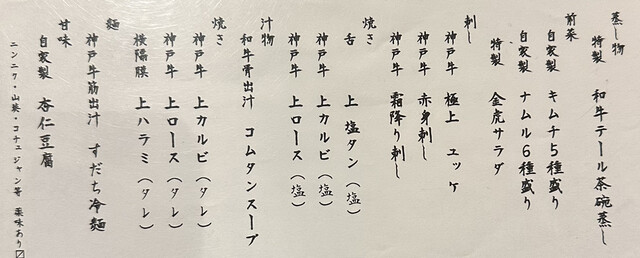 蒸し物
特製 和牛テール茶碗蒸し
前菜
自家製 キムチ5種盛り
自家製 ナムル6種盛り
特製 金虎サラダ
刺し
神戸牛 極上 ユッケ
神戸牛 赤身刺し
神戸牛 霜降り刺し
焼き
舌 上 塩タン(塩)
神戸牛 上カルビ(塩)
神戸牛 上ロース(塩)
汁物
和牛骨出汁 コムタンスープ
焼き
神戸牛 上カルビ(タレ)
神戸牛 上ロース(タレ)
横隔膜 上ハラミ(タレ)
麺
神戸牛筋出汁 すだち冷麺
甘味
自家製 杏仁豆腐
ニンニク・山葵・コチュジャン等 薬味あり〼